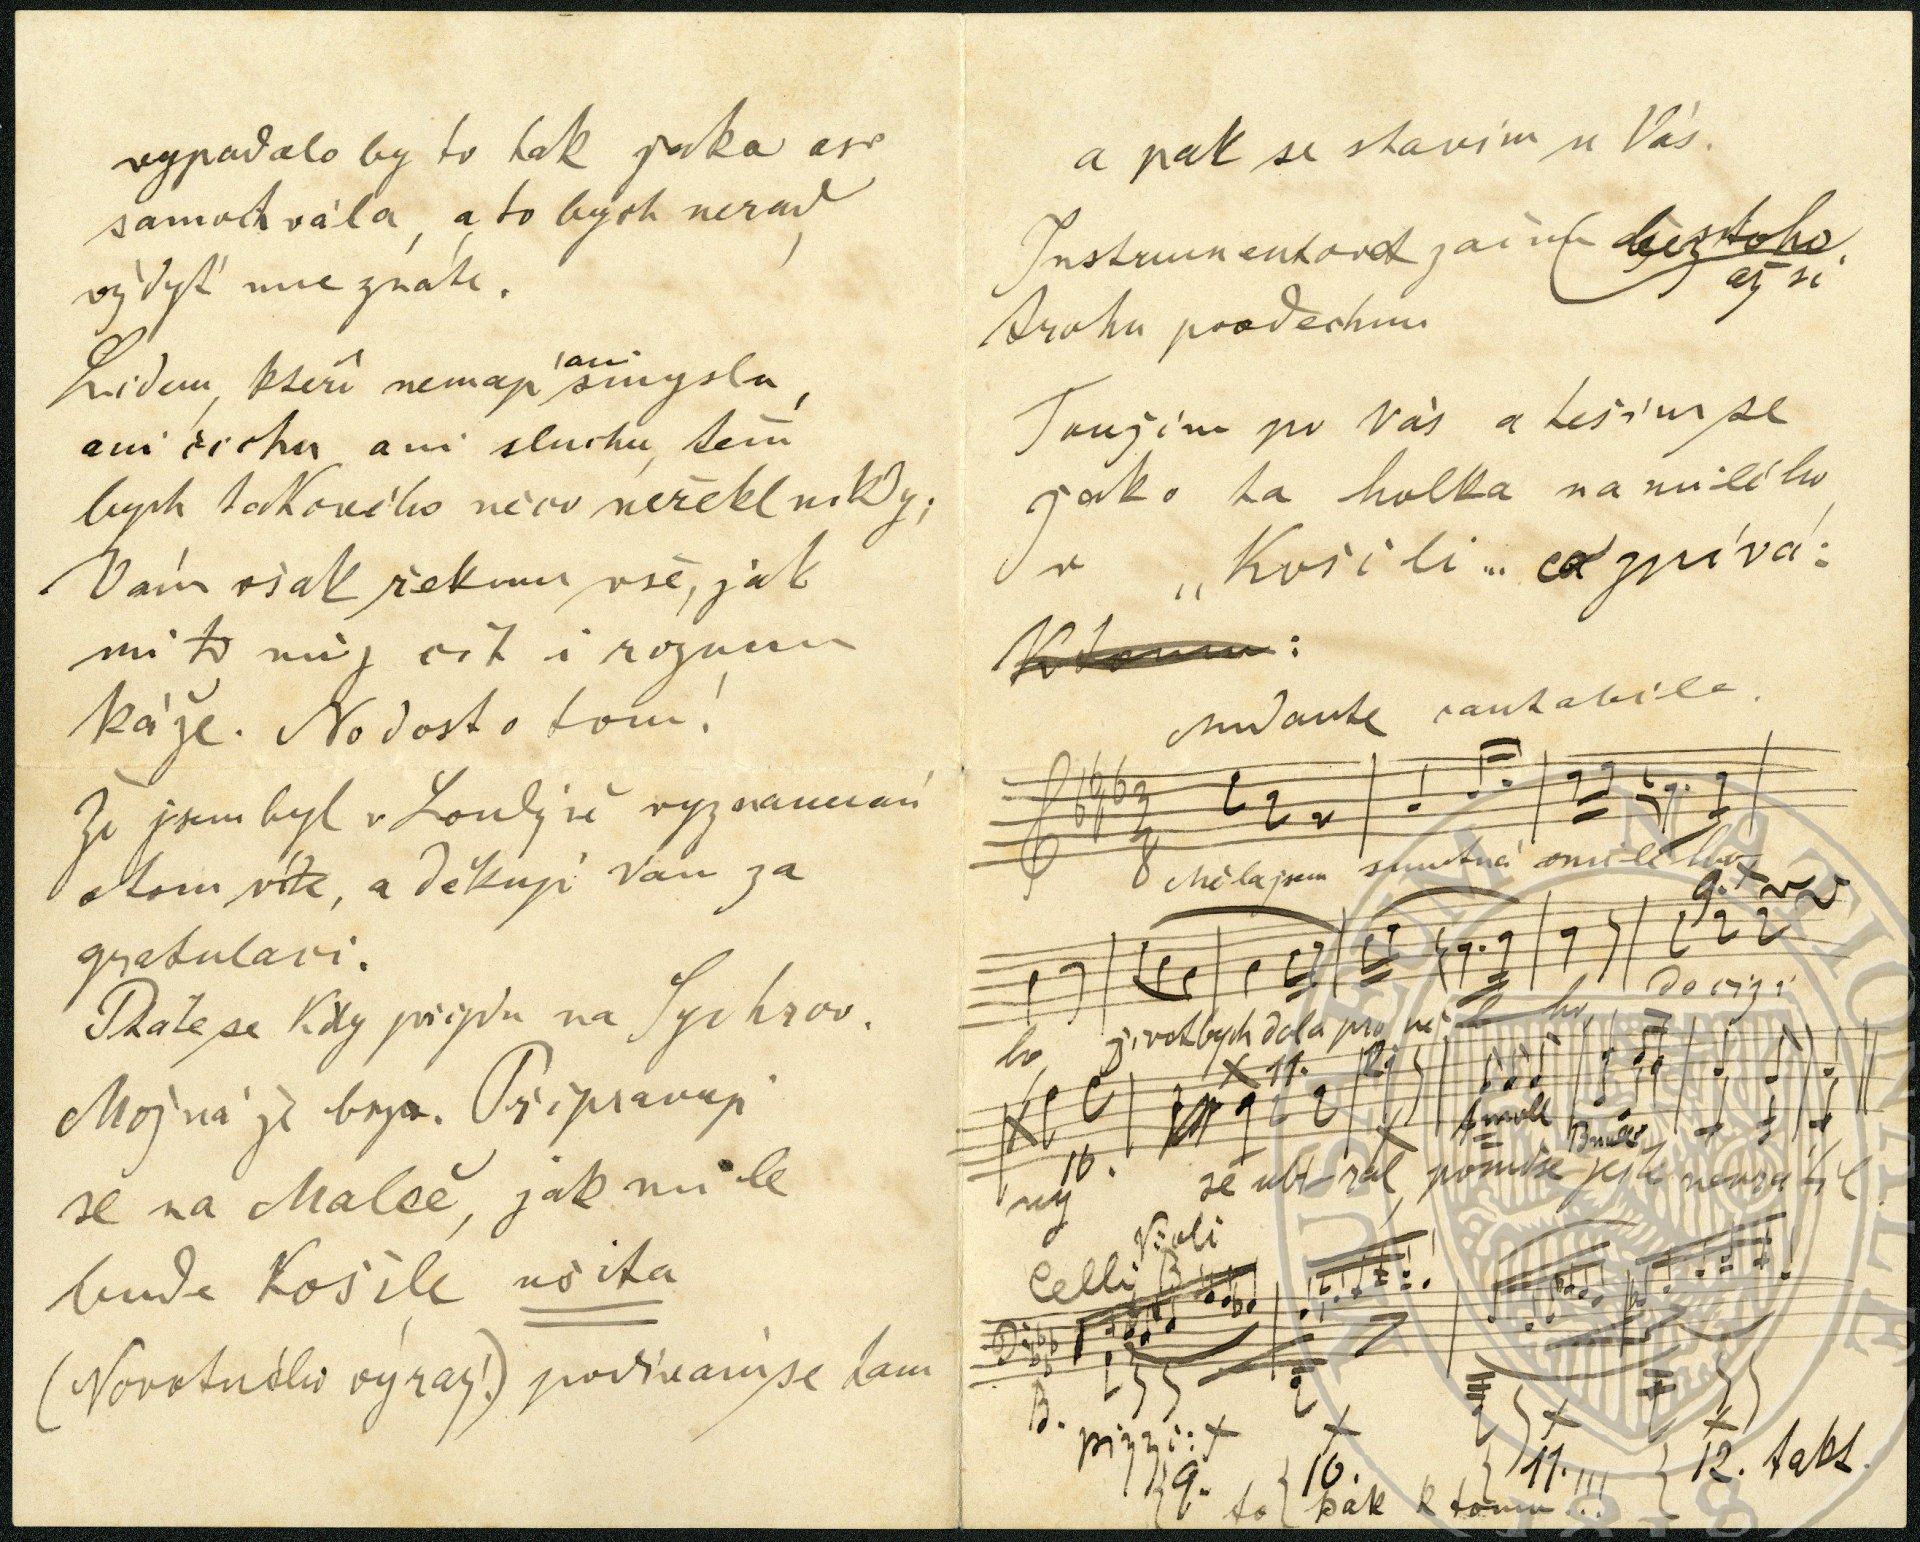 vypadalo by to tak jaka asi
samochvála, a to bych nerad,
vždyť mne znáte.
Lidem, kteří nemají ani smyslu,
ani čichu ani sluchu, těm
bych takového něco neřekl nikdy;
Vám však řeknu vše, jak
mi to můj cit i rozum
káže. No dost o tom!
Že jsem byl v Londýně vyznamenán
o tom víte, a děkuji Vám za
gratulaci.
Ptáte se kdy přijdu na Sychrov.
Možná že brzo. Připravuji
se na Maleč, jak mile
bude Košile ušita
(Novotného výraz!) podívám se tam
a pak se stavím u Vás.
Instrumentovat začnu až si
trohu podechnu
Toužím po Vás a těším se
jako ta holka na milého,
v „Košili... co zpívá:
K tomu:
Andante cantabile.
8 Měla jsem smutná milého
9. +
ho život bych dala pro něho do cizi
+ 11.
10.
A moll B moll
ny se ubíral, pomůže ještě nevrátil
Celli Violi
B.
pizzi: + + + +
9. 10. 11. 12. takt.
to pak k tomu!!!